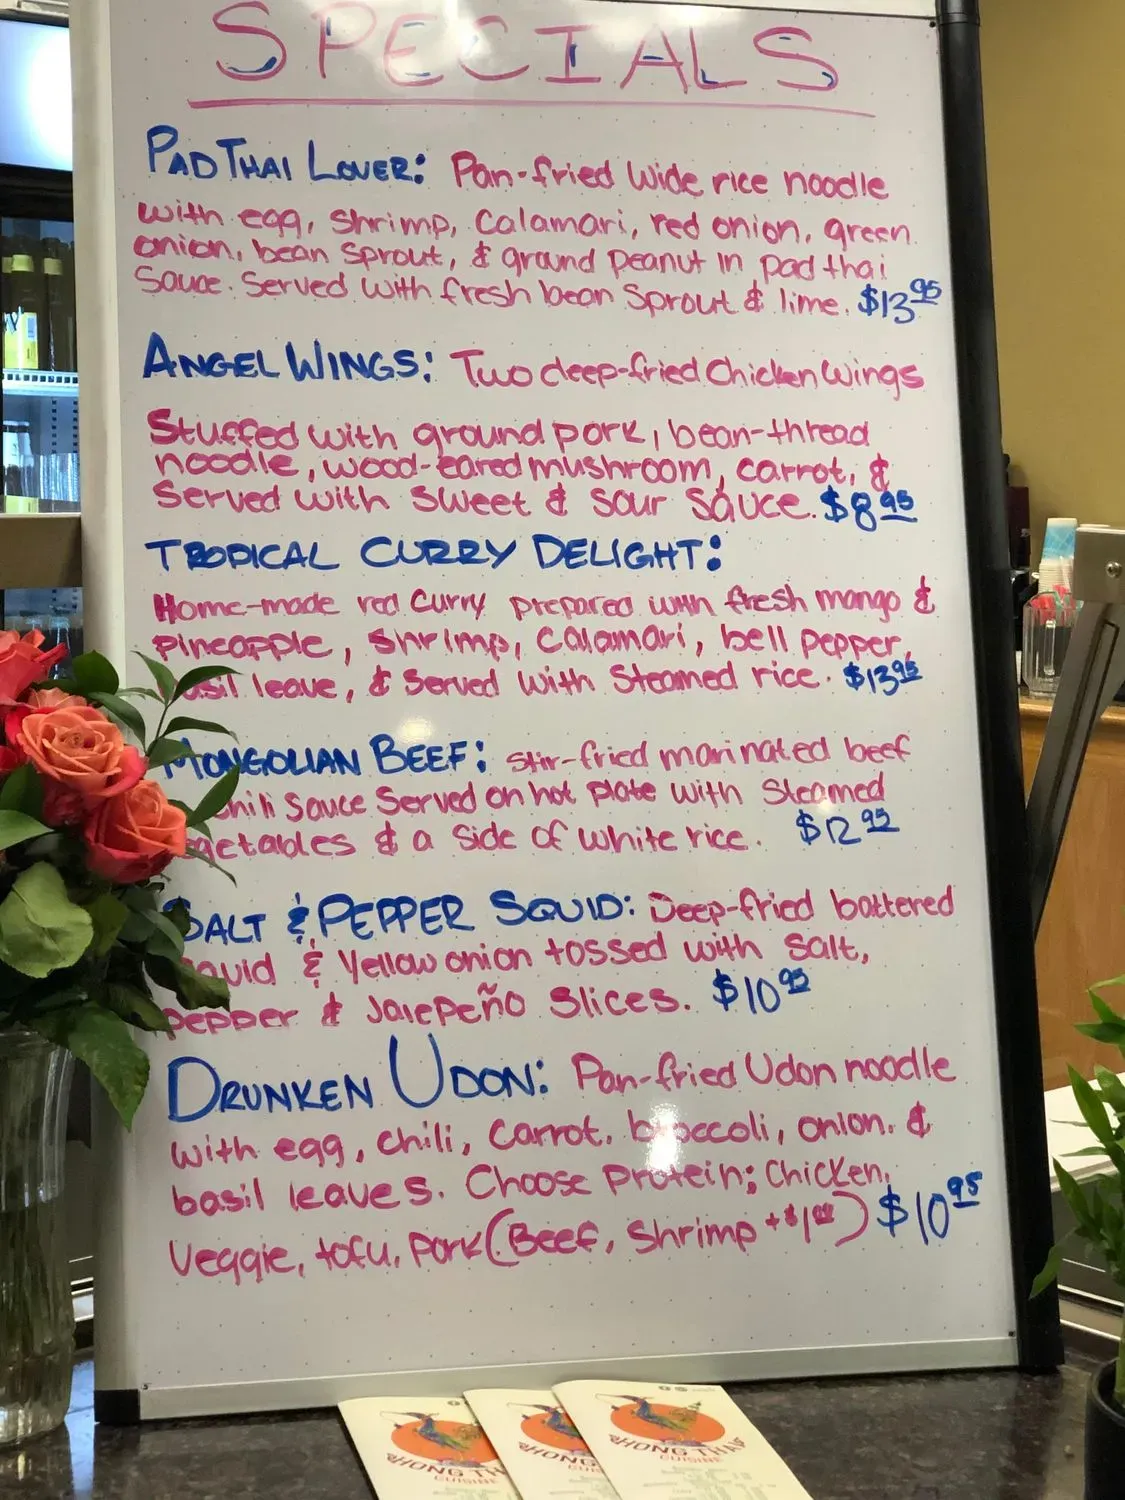 SPECIALS
PAD THAI LOVER: Pan-fried Wide rice noodle
with egg, shrimp, Calamari, red onion, green
onion, bean sprout, & ground peanut in pad thai
Sauce. Served with fresh bean Sprout & lime. $13.95
ANGEL WINGS: Two deep-fried Chicken Wings
Stuffed with ground pork, bean-thread
noodle, wood-eared mushroom, carrot, &
Served with sweet & sour sauce. $8.95
TROPICAL CURRY DELIGHT:
Home-made red curry prepared with fresh mango &
pineapple, shrimp, calamari, bell pepper,
basil leave, & Served with Steamed rice. $13.95
MONGOLIAN BEEF: Stir-fried marinated beef
chili Sauce Served on hot plate with Steamed
getables & a side of white rice. $12.95
SALT & PEPPER SQUID: Deep-fried battered
squid & Yellow onion tossed with salt,
pepper & Jalepeño slices. $10.95
DRUNKEN UDON: Pan-fried Udon noodle
with egg, chili, Carrot, broccoli, onion, &
basil leaves. Choose Protein; Chicken,
Veggie, tofu, pork (Beef, Shrimp +$1.00) $10.95
HONG THAI
CUISINE